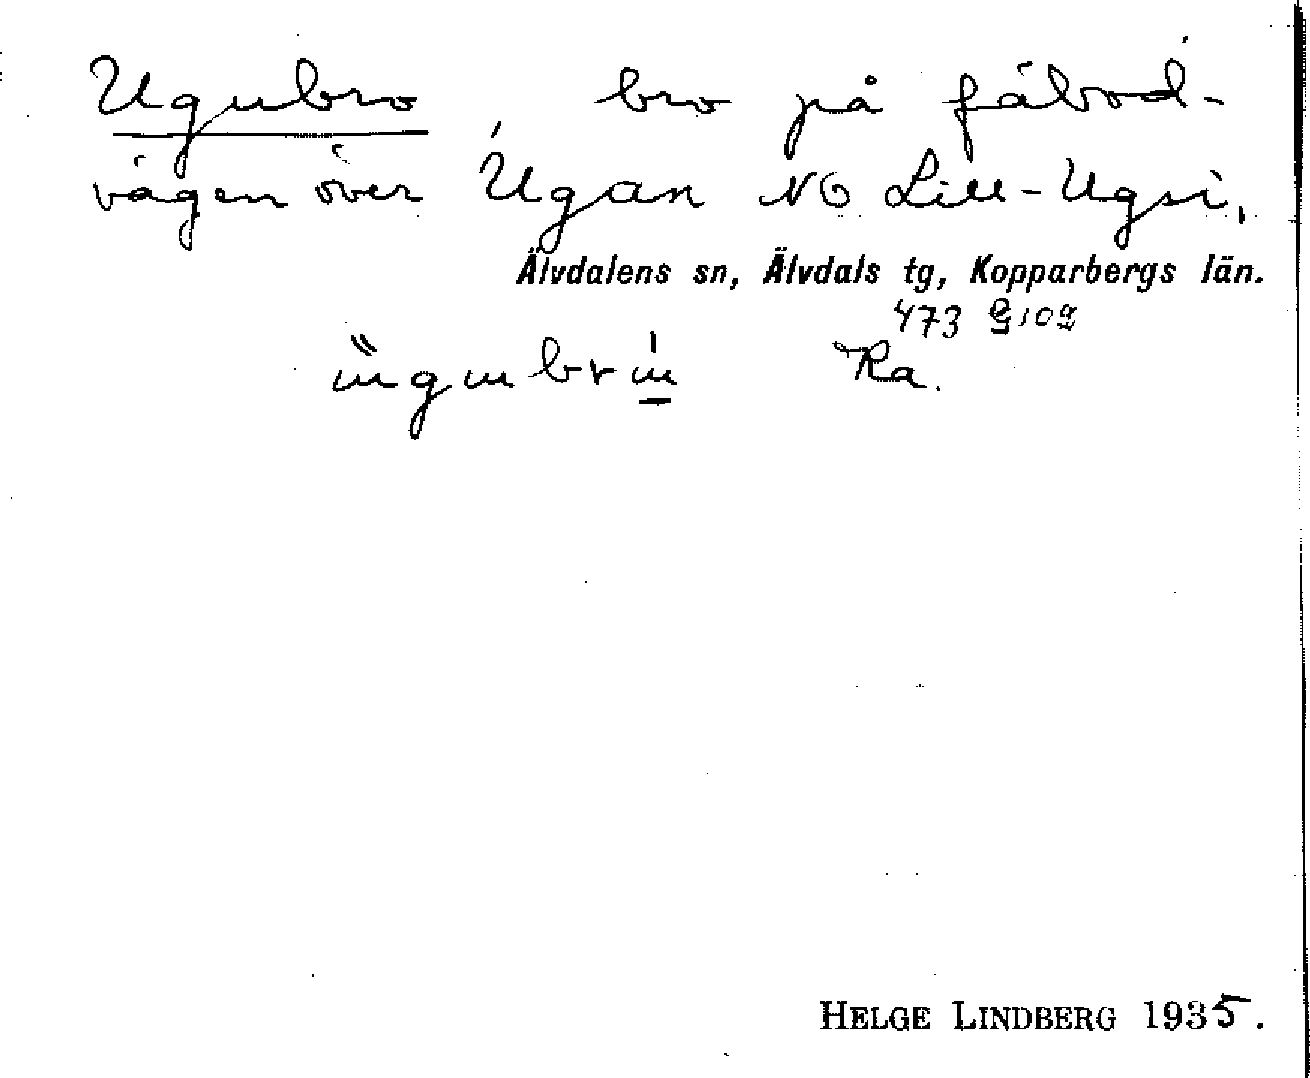 Ugubro bro på fäbod-
vägen över Ugan NO Lill-Ugsi,
Älvdalens sn, Älvdals tg, Kopparbergs län.
473
Ra.
HELGE LINDBERG 1935.